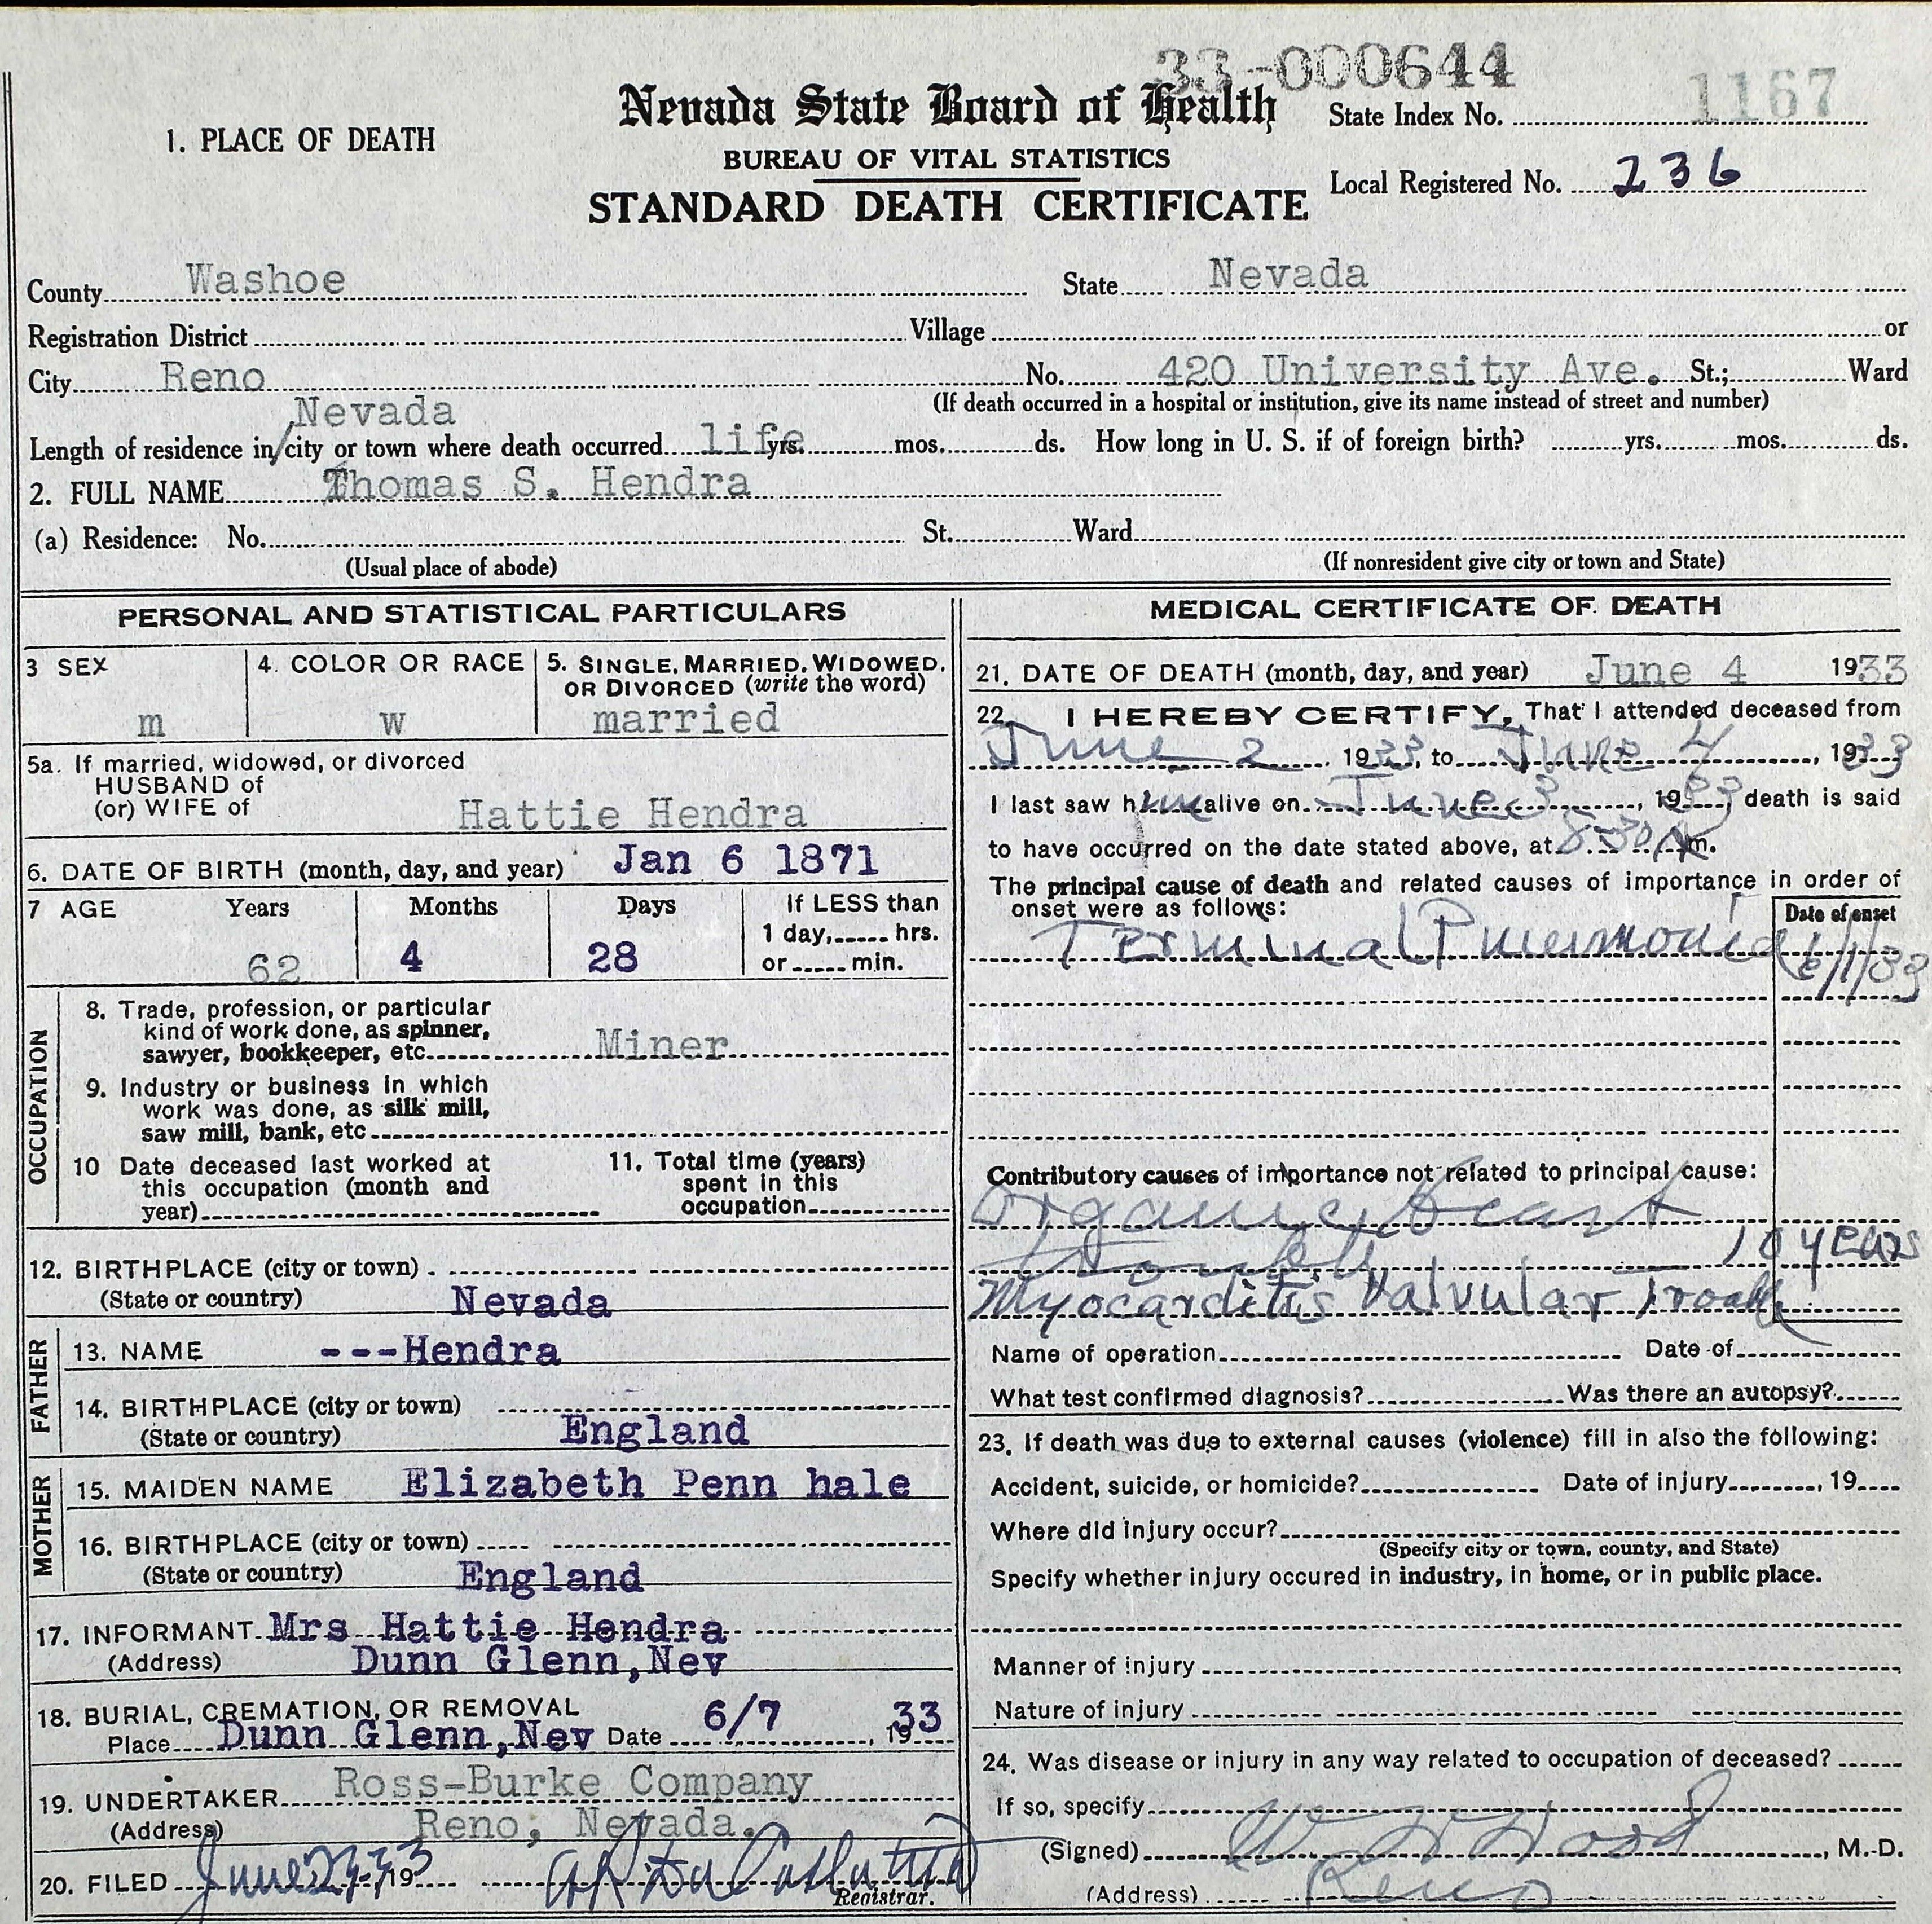 33-000644
Nevada State Board of Health
State Index No. 1167
1. PLACE OF DEATH
BUREAU OF VITAL STATISTICS
Local Registered No. 236
STANDARD DEATH CERTIFICATE
County Washoe State Nevada
Registration District Village or
City Reno No. 420 University Ave. St.; Ward
(If death occurred in a hospital or institution, give its name instead of street and number)
Nevada
Length of residence in/city or town where death occurred life yrs. mos. ds. How long in U. S. if of foreign birth? yrs. mos. ds.
2. FULL NAME Thomas S. Hendra
(a) Residence: No. St. Ward
(Usual place of abode) (If nonresident give city or town and State)
PERSONAL AND STATISTICAL PARTICULARS
3 SEX 4. COLOR OR RACE 5. SINGLE, MARRIED, WIDOWED,
OR DIVORCED (write the word)
m w married
5a. If married, widowed, or divorced
HUSBAND of
(or) WIFE of Hattie Hendra
6. DATE OF BIRTH (month, day, and year) Jan 6 1871
7 AGE Years Months Days If LESS than
1 day, hrs.
62 4 28 or min.
OCCUPATION
8. Trade, profession, or particular
kind of work done, as spinner,
sawyer, bookkeeper, etc. Miner
9. Industry or business in which
work was done, as silk mill,
saw mill, bank, etc
10 Date deceased last worked at
this occupation (month and
year)
11. Total time (years)
spent in this
occupation
12. BIRTHPLACE (city or town)
(State or country) Nevada
FATHER
13. NAME ---Hendra
14. BIRTHPLACE (city or town)
(State or country) England
MOTHER
15. MAIDEN NAME Elizabeth Penn hale
16. BIRTHPLACE (city or town)
(State or country) England
17. INFORMANT Mrs Hattie Hendra
(Address) Dunn Glenn,Nev
18. BURIAL, CREMATION, OR REMOVAL
Place Dunn Glenn,Nev Date 6/7, 1933
19. UNDERTAKER Ross-Burke Company
(Address) Reno, Nevada.
20. FILED June 33, 19
Registrar.
MEDICAL CERTIFICATE OF DEATH
21. DATE OF DEATH (month, day, and year) June 4 1933
22. I HEREBY CERTIFY, That I attended deceased from
June 2, 1933, to June 4, 1933
I last saw him alive on June 3, 1933, death is said
to have occurred on the date stated above, at 8:30 A m.
The principal cause of death and related causes of importance in order of
onset were as follows:
Date of onset
Terminal Pneumonia 6/1/33
Contributory causes of importance not related to principal cause:
Organic heart
trouble 10 years
Myocarditis Valvular Trouble
Name of operation Date of
What test confirmed diagnosis? Was there an autopsy?
23. If death was due to external causes (violence) fill in also the following:
Accident, suicide, or homicide? Date of injury, 19
Where did injury occur?
(Specify city or town, county, and State)
Specify whether injury occured in industry, in home, or in public place.
Manner of injury
Nature of injury
24. Was disease or injury in any way related to occupation of deceased?
If so, specify
(Signed) W H Hood, M. D.
(Address) Reno